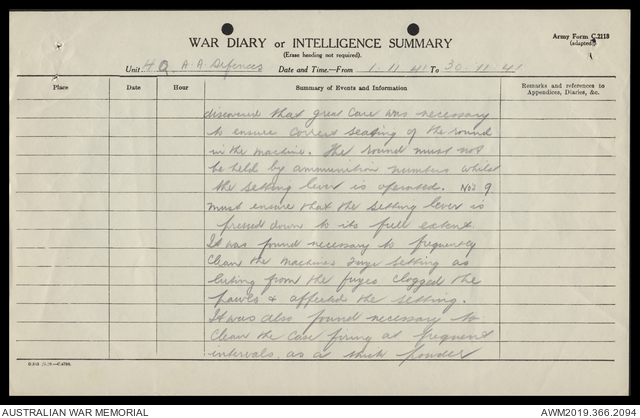 Army Form C.2118
(adapted)
WAR DIARY or INTELLIGENCE SUMMARY
(Erase heading not required).
Unit H.Q. A.A. Defences Date and Time.—From 1-11-41 To 30-11-41
Place Date Hour Summary of Events and Information Remarks and references to Appendices, Diaries, &c.
discovered that great care was necessary
to ensure correct seating of the round
in the machine. The round must not
be held by ammunition numbers whilst
the setting lever is operated. No's 9
must ensure that the setting lever is
pressed down to its full extent.
It was found necessary to frequently
clean the machines fuze setting as
luting from the fuzes clogged the
pawls & affected the setting.
It was also found necessary to
clean the case firing at frequent
intervals as a thick powder
AUSTRALIAN WAR MEMORIAL
AWM2019.366.2094